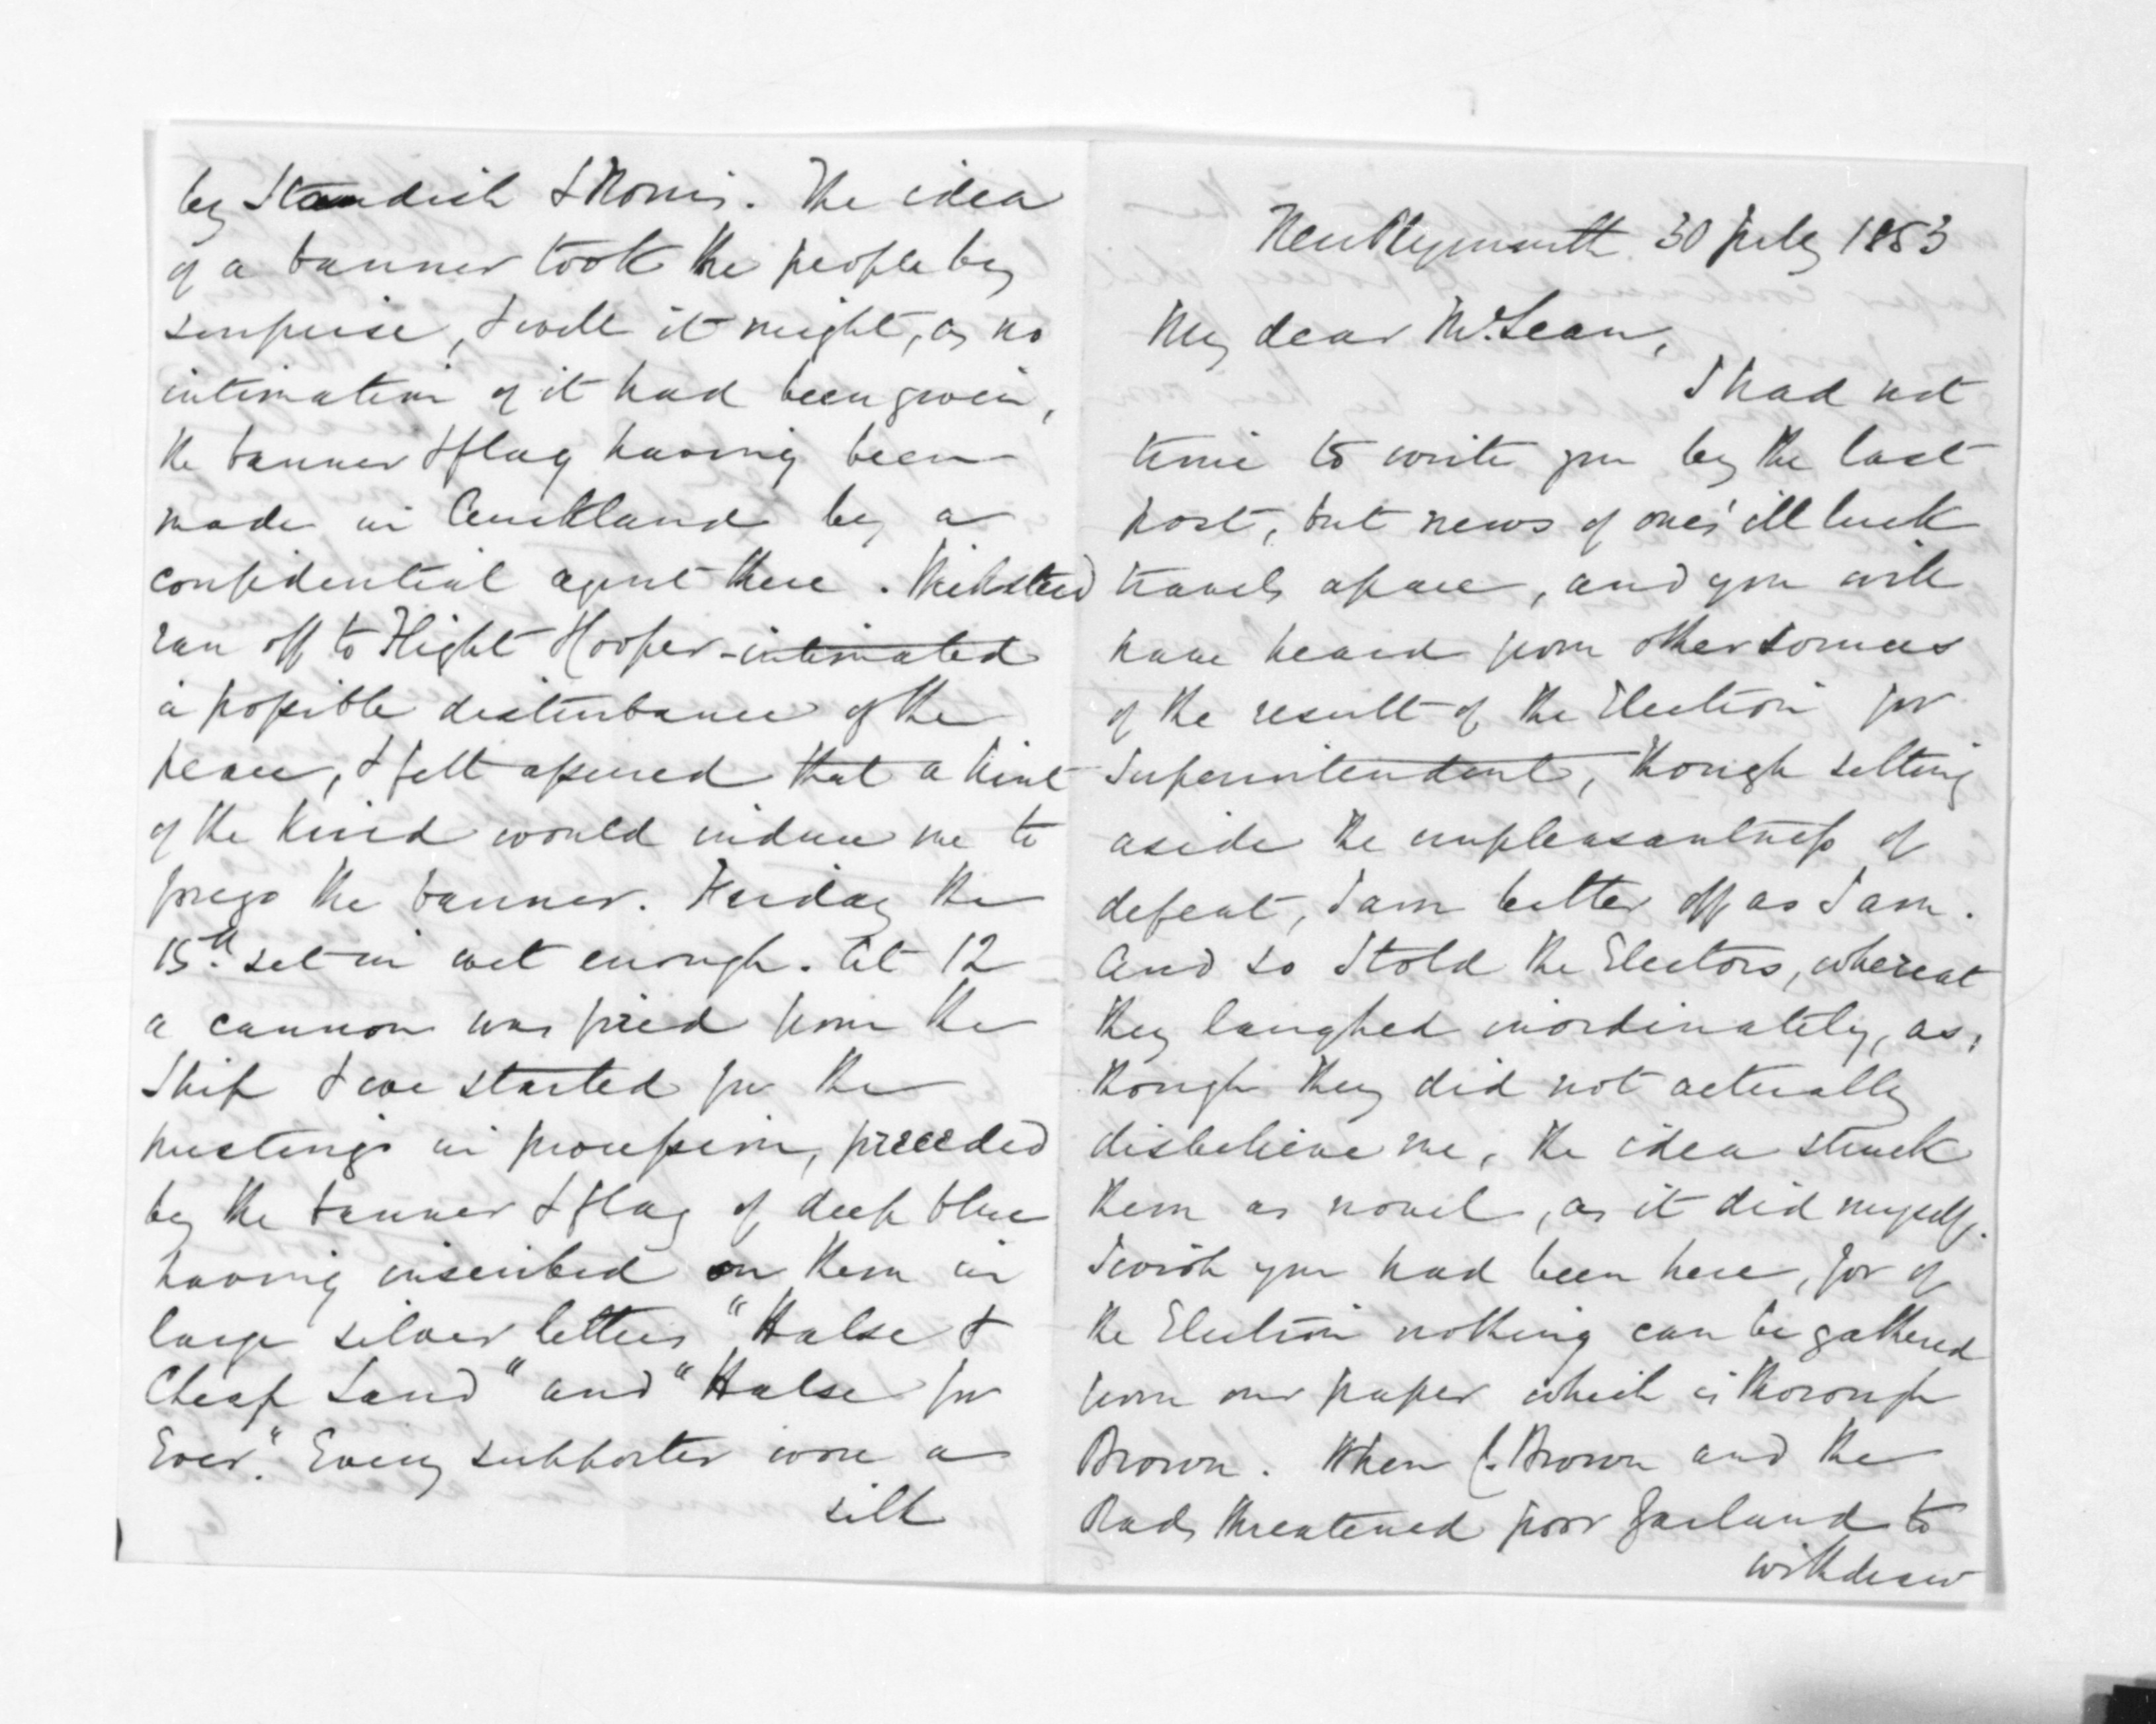 New Plymouth 30 July 1853
My dear McLean,
I had not
time to write you by the last
post, but news of one's ill luck
travels apace, and you will
have heard from other sources
of the result of the Election for
Superintendent, though setting
aside the unpleasantness of
defeat, I am better off as I am.
And so I told the Electors, whereat
they laughed inordinately, as,
though they did not actually
disbelieve me, the idea struck
them as novel, as it did myself.
I wish you had been here, for of
the Election nothing can be gathered
from our paper which is thorough
Brown. When C. Brown and the
Rads threatened poor Garland to
withdraw
by Standish & Norris. The idea
of a banner took the people by
surprise, & well it might, as no
intimation of it had been given,
the banner & flag having been
made in Auckland by a
confidential agent there. Wicksteed
ran off to Flight - Hooper - intimated
a possible disturbance of the
peace, & felt assured that a hint
of the kind would induce me to
forego the banner. Friday the
15th. set in wet enough. At 12
a cannon was fired from the
Ship & we started for the
hustings in procession, preceded
by the banner & flag of deep blue
having inscribed on them in
large silver letters "Halse &
Cheap Land" and "Halse for
Ever." Every supporter wore a
silk